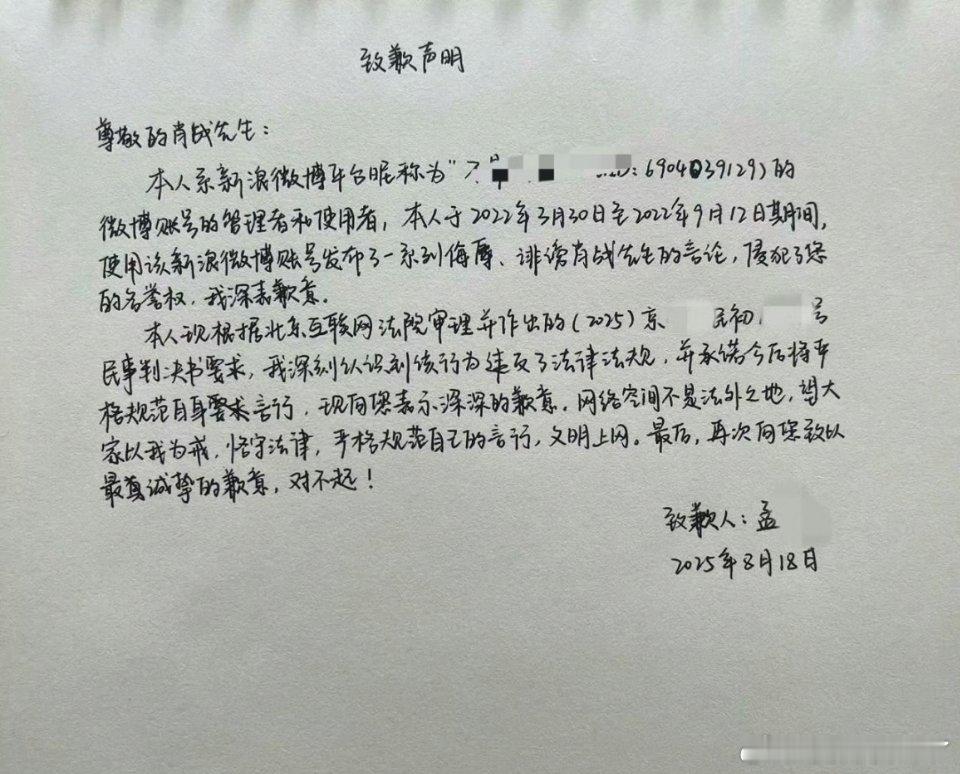 致歉声明
尊敬的肖战先生：
本人系新浪微博平台昵称为" :6904039129)的
微博账号的管理者和使用者，本人于2022年3月30日至2022年9月12日期间，
使用该新浪微博账号发布了一系列侮辱、诽谤肖战先生的言论，侵犯了您
的名誉权，我深表歉意。
本人现根据北京互联网法院审理并作出的(2025)京 民初 号
民事判决书要求，我深刻认识到该行为违反了法律法规，并承诺今后将严
格规范自身要求言行，现向您表示深深的歉意。网络空间不是法外之地，望大
家以我为戒，恪守法律，严格规范自己的言行，文明上网。最后，再次向您致以
最真诚挚的歉意，对不起！
致歉人：孟
2025年8月18日